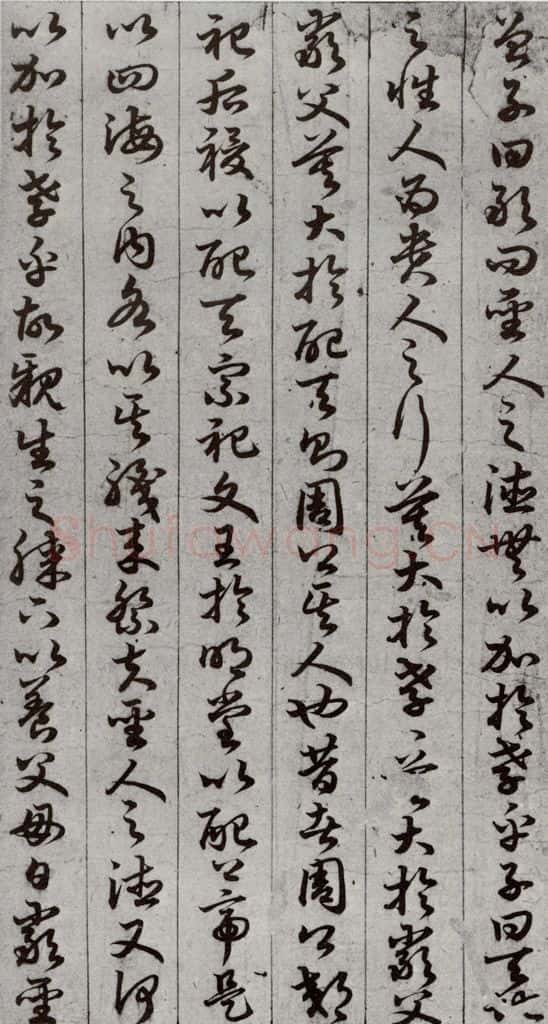 曾子曰敢問聖人之德無以加於孝乎子曰天地
之性人為貴人之行莫大於孝孝莫大於嚴父
嚴父莫大於配天則周公其人也昔者周公郊
祀后稷以配天宗祀文王於明堂以配上帝是
以四海之內各以其職來祭夫聖人之德又何
以加於孝乎故親生之膝下以養父母日嚴聖
Shufawang.CN